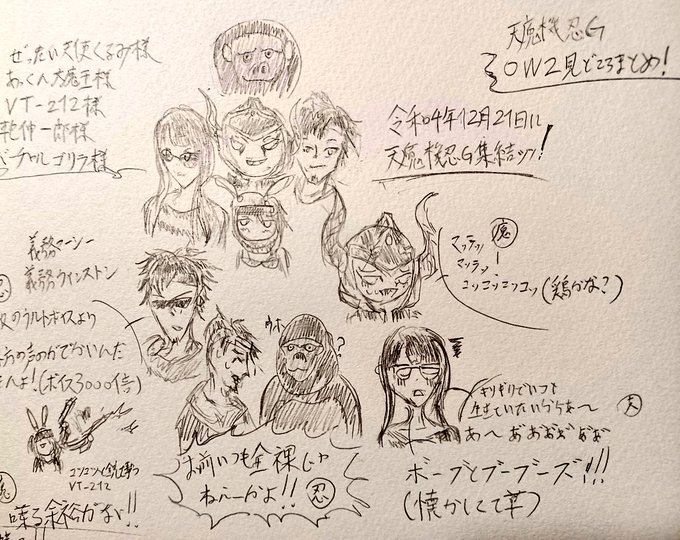 天魔機忍G
OW2見どころまとめ!
ぜったい天使くるみ様
あっくん大魔王様
VT-212様
乾伸一郎様
バーチャルゴリラ様
令和4年12月21日に
天魔機忍G集結ッッ!
義務マーシー
義務ウィンストン
忍
のウルトボイスより
方の声のがでかいんだ
よ!(ボイス3000倍)
魔
マッテッ
マッテッ!
コッコッコッコッ(鶏かな?)
ウホ
?
お前いつも全裸じゃ
ねーかよ!! 忍
ギリギリでいつも
生きていたいから
あ〜
天
ボーブとブーブーズ!!!
(懐かしくて草)
VT-212
魔
喋る余裕がない!!